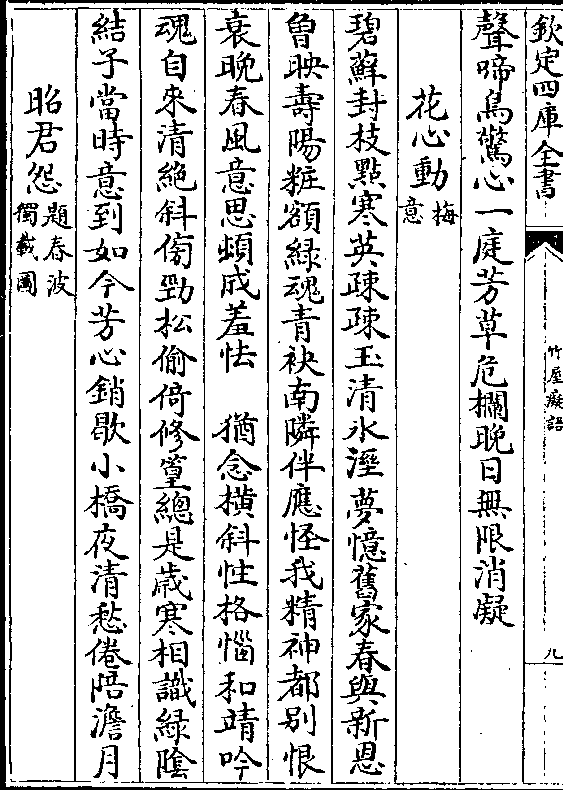 欽定四庫全書
竹屋癡語
九
聲啼鳥驚心一庭芳草危欄晚日無限消凝
花心動梅意
碧蘚封枝點寒英疎疎玉清氷溼夢憶舊家春與新恩
曽映壽陽粧額緑魂青袂南隣伴應怪我精神都别恨
衰晚春風意思頓成羞怯　猶念横斜性格惱和靖吟
魂自來清絶斜傍勁松偷倚修篁總是歳寒相識緑陰
結子當時意到如今芳心銷歇小橋夜清愁倦陪澹月
昭君怨題春波獨載圖